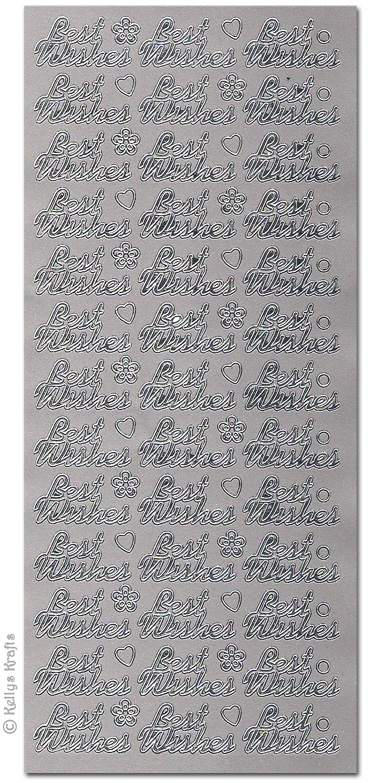 Best
Wishes
Best
Wishes
Best
Wishes
Best
Wishes
Best
Wishes
Best
Wishes
Best
Wishes
Best
Wishes
Best
Wishes
Best
Wishes
Best
Wishes
Best
Wishes
Best
Wishes
Best
Wishes
Best
Wishes
Best
Wishes
Best
Wishes
Best
Wishes
Best
Wishes
Best
Wishes
Best
Wishes
Best
Wishes
Best
Wishes
Best
Wishes
Best
Wishes
Best
Wishes
Best
Wishes
Best
Wishes
Best
Wishes
Best
Wishes
Best
Wishes
Best
Wishes
Best
Wishes
Best
Wishes
Best
Wishes
Best
Wishes
Best
Wishes
Best
Wishes
Best
Wishes
© Kellys Krafts